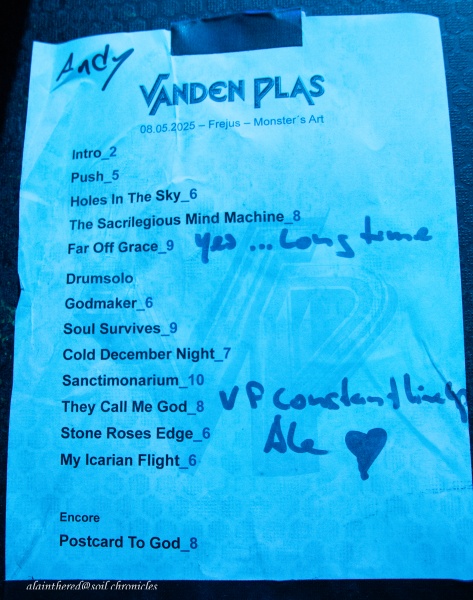 Andy
VANDEN PLAS
08.05.2025 – Frejus – Monster´s Art
Intro_2
Push_5
Holes In The Sky_6
The Sacrilegious Mind Machine_8
Far Off Grace_9 yes ... Long time
Drumsolo
Godmaker_6
Soul Survives_9
Cold December Night_7
Sanctimonarium_10
They Call Me God_8 VP constant
Stone Roses Edge_6
My Icarian Flight_6
Encore
Postcard To God_8
alainthered@soil chronicles